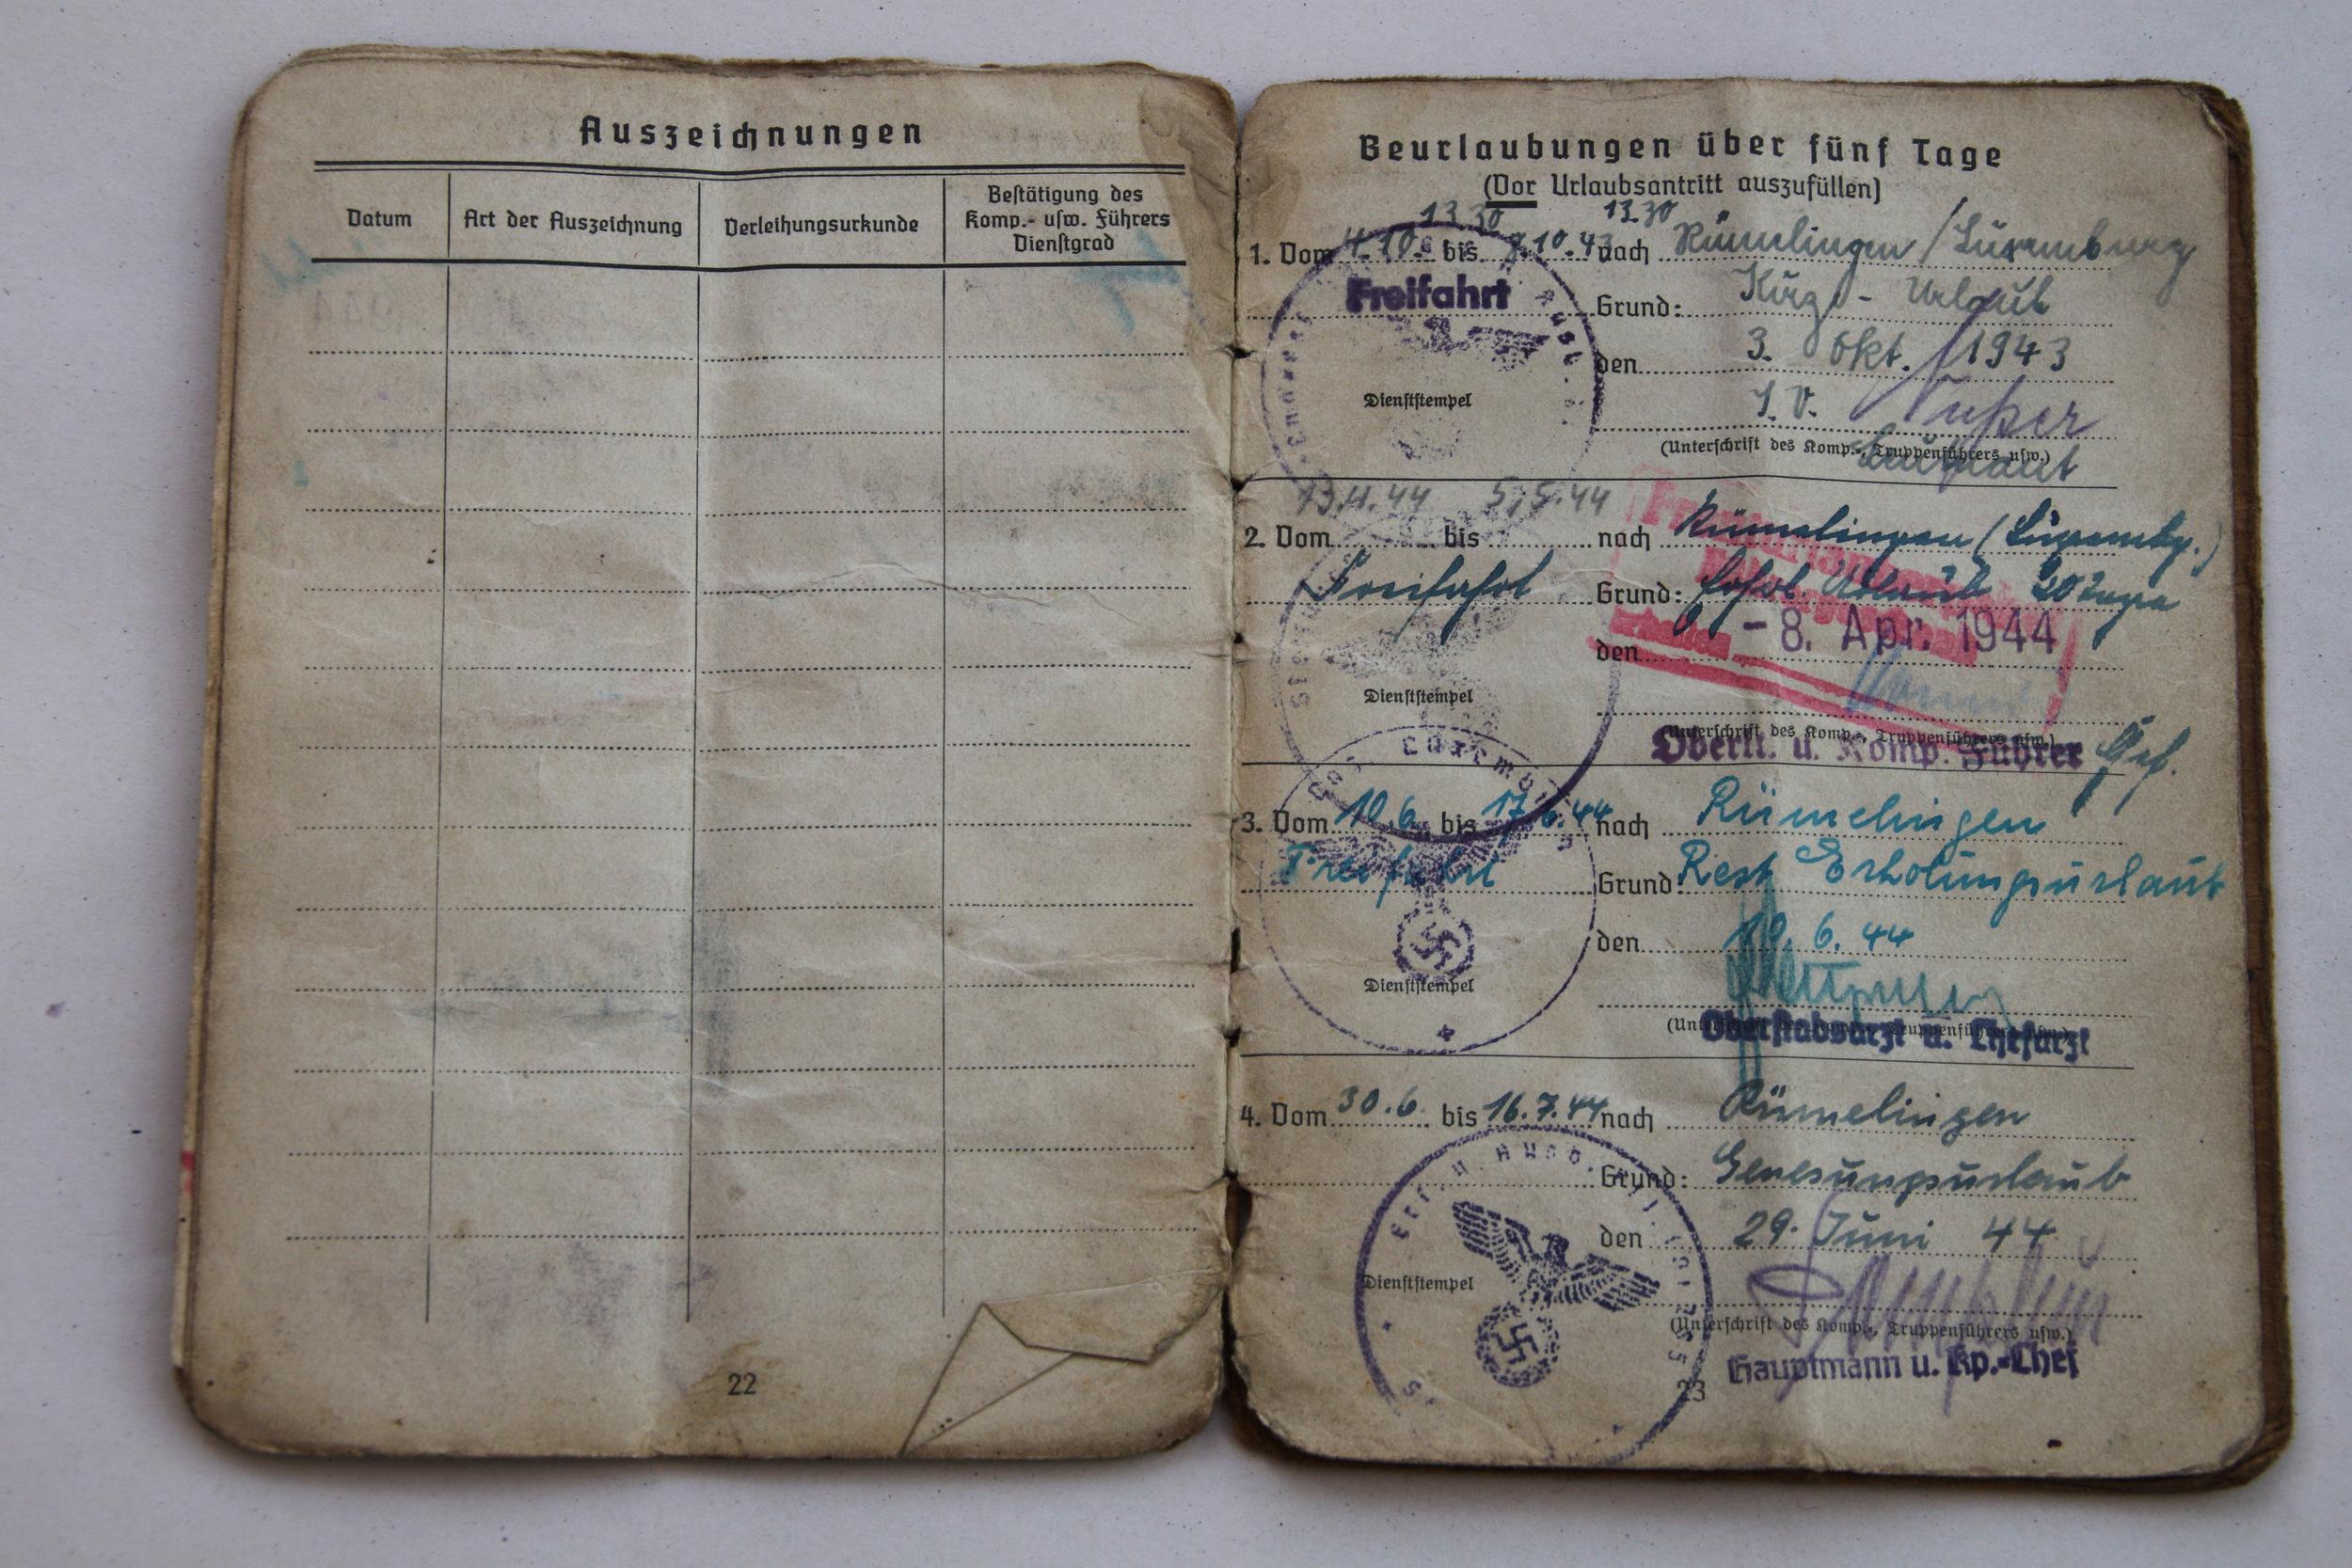 Auszeichnungen
Datum
Art der Auszeichnung
Verleihungsurkunde
Bestätigung des
Komp.- usw. Führers
Dienstgrad
22
Beurlaubungen über fünf Tage
(Vor Urlaubsantritt auszufüllen)
13.30 13.30
1. Vom 4.10. bis 9.10.43 nach Rümelingen / Luxemburg
Freifahrt
Grund: Kurz-Urlaub
den 3. Okt. 1943
Dienststempel
I.V.
(Unterschrift des Komp., Truppenführers usw.)
Leutnant
13.4.44 5.5.44
2. Vom bis nach Rümelingen (Luxembg.)
Freifahrt Grund: Urlaub 20 Tage
den - 8. Apr. 1944
Dienststempel
(Unterschrift des Komp., Truppenführers usw.)
Oberlt. u. Komp. Führer
3. Vom 10.6. bis 17.6.44 nach Rümelingen
Freifahrt Grund: Rest Erholungsurlaub
den 10. 6. 44
Dienststempel
Oberstabsarzt u. Chefarzt
4. Vom 30.6. bis 16.7.44 nach Rümelingen
Grund: Genesungsurlaub
den 29. Juni 44
Dienststempel
(Unterschrift des Komp., Truppenführers usw.)
Hauptmann u. Kp.-Chef
23